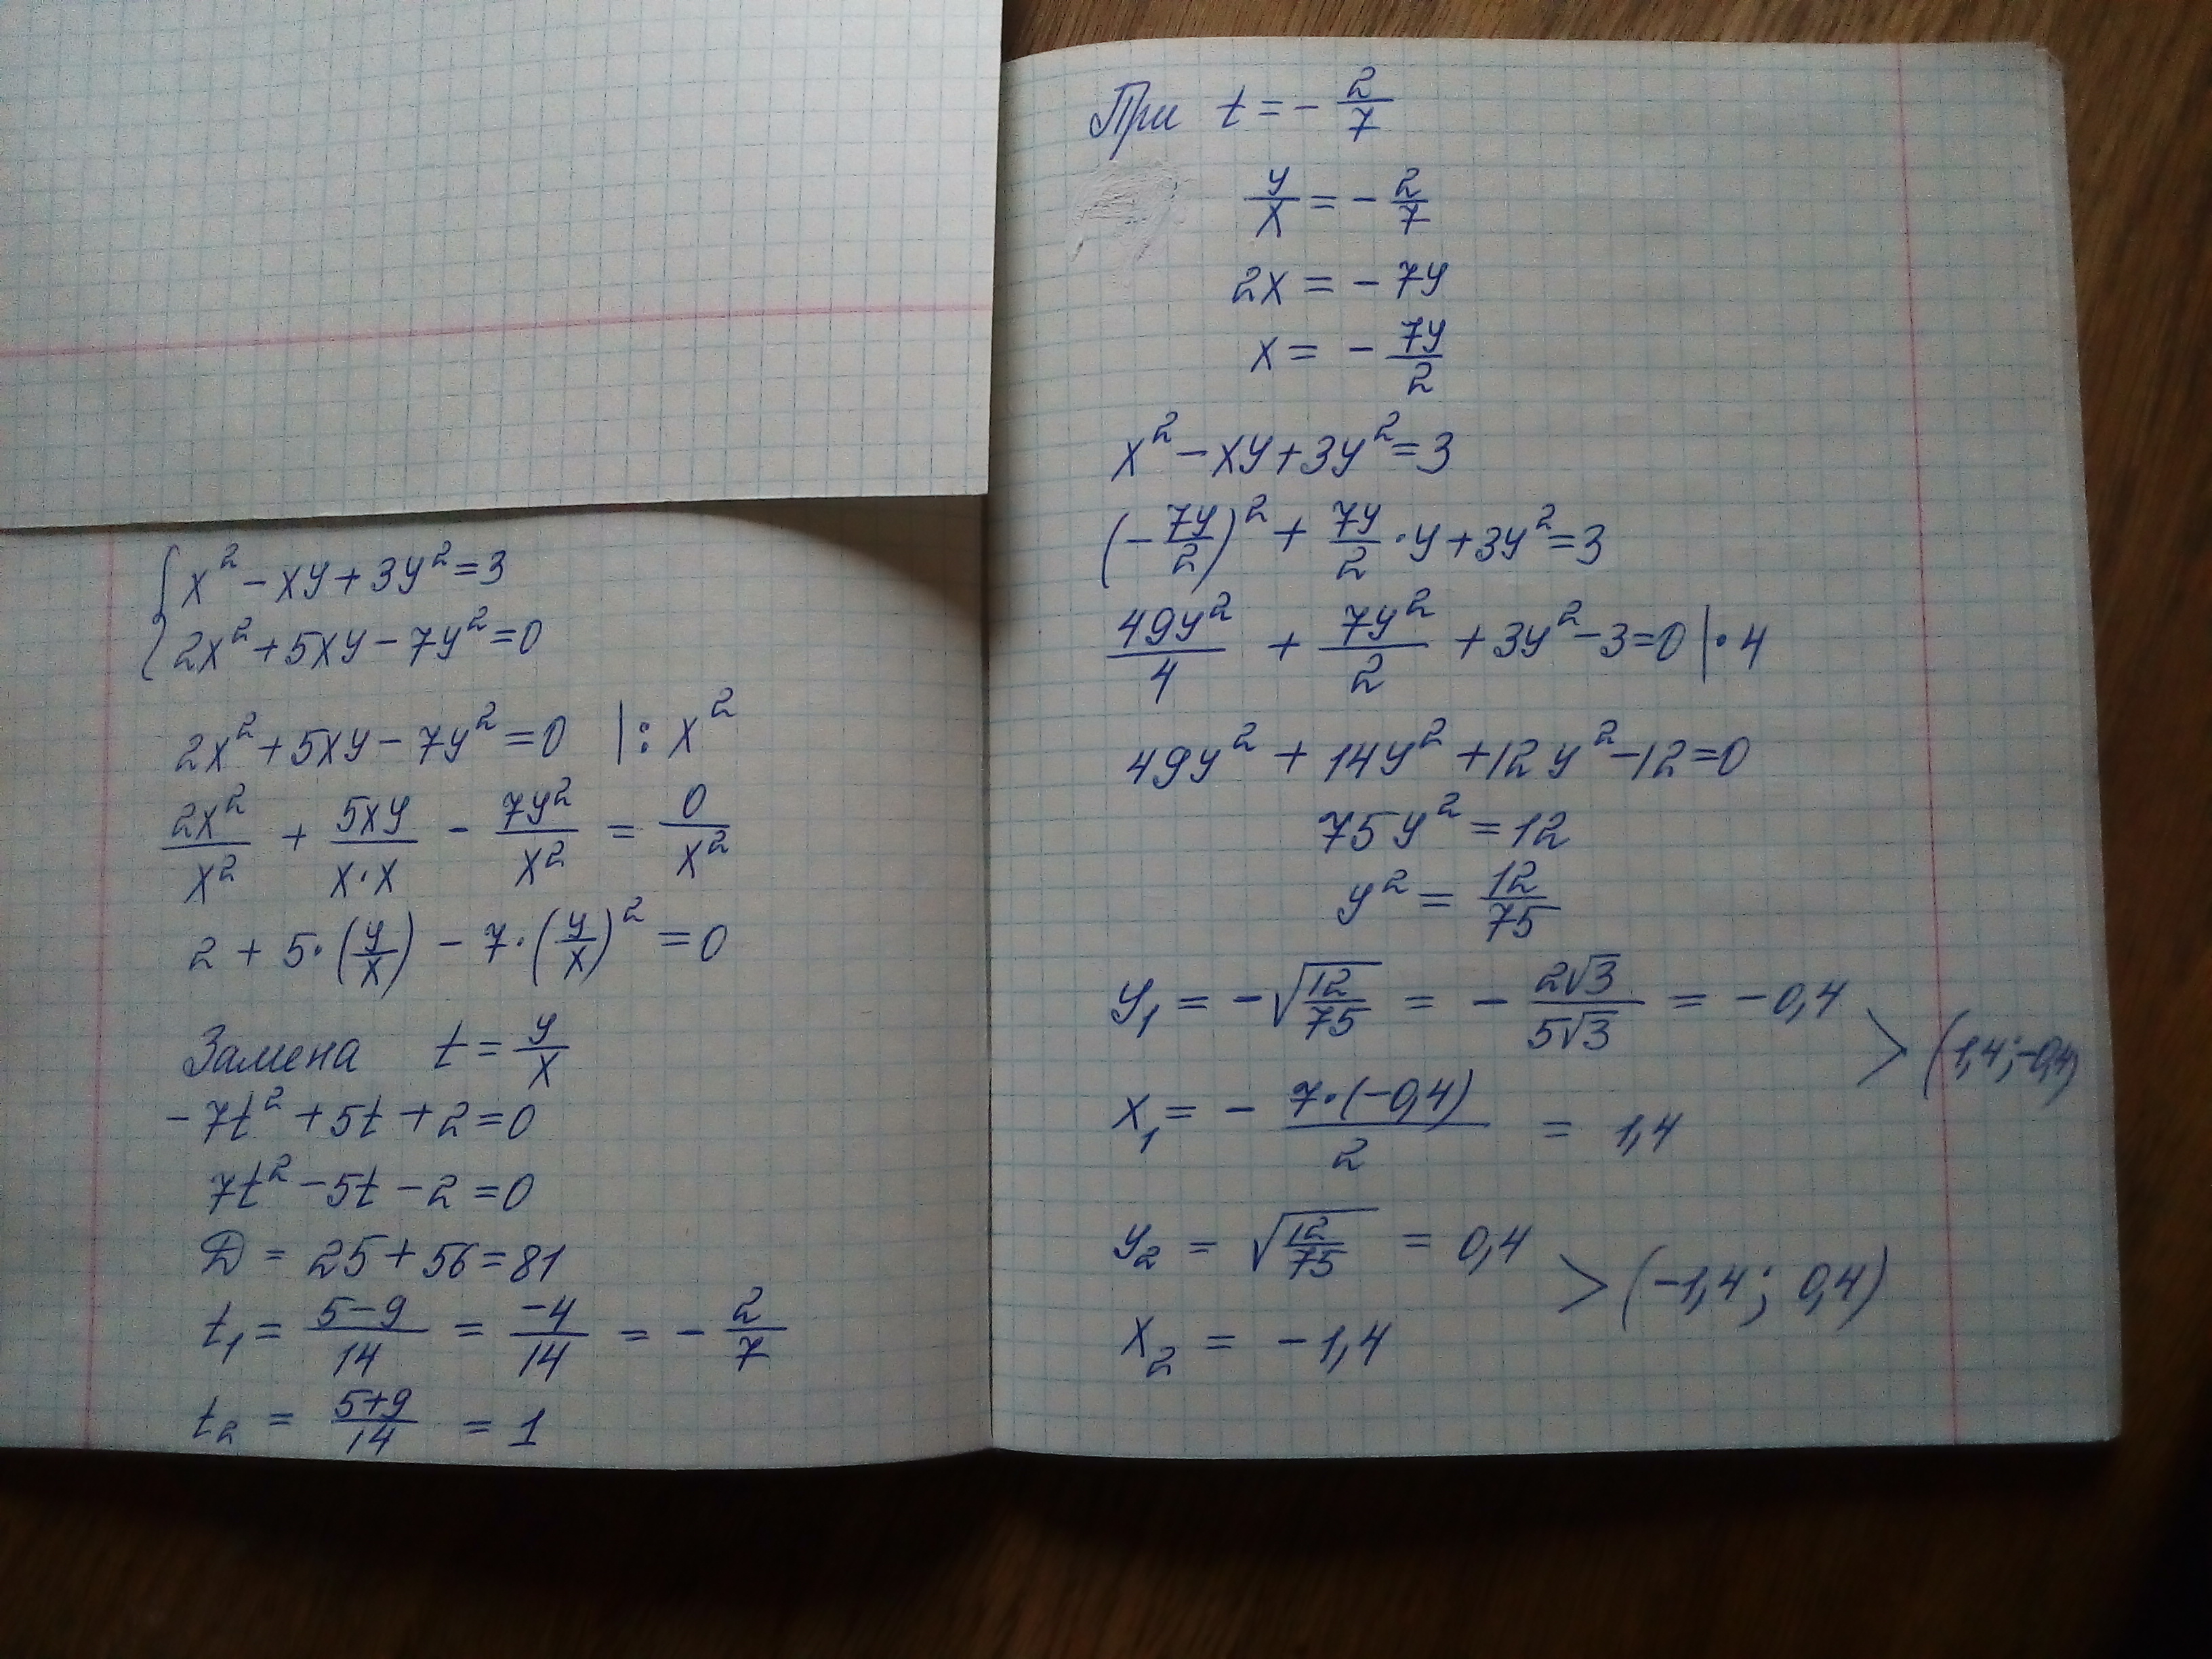 { x² - xy + 3y² = 3
2x² + 5xy - 7y² = 0
2x² + 5xy - 7y² = 0 | : x²
2x²/x² + 5xy/x·x - 7y²/x² = 0/x²
2 + 5·(y/x) - 7·(y/x)² = 0
Замена t = y/x
-7t² + 5t + 2 = 0
7t² - 5t - 2 = 0
D = 25 + 56 = 81
t₁ = 5-9/14 = -4/14 = - 2/7
t₂ = 5+9/14 = 1
При t = - 2/7
y/x = - 2/7
2x = - 7y
x = - 7y/2
x² - xy + 3y² = 3
(- 7y/2)² + 7y/2 · y + 3y² = 3
49y²/4 + 7y²/2 + 3y² - 3 = 0 | · 4
49y² + 14y² + 12y² - 12 = 0
75y² = 12
y² = 12/75
y₁ = - √12/75 = - 2√3/5√3 = - 0,4
> (1,4; -0,4)
x₁ = - 7·(-0,4)/2 = 1,4
y₂ = √12/75 = 0,4
> (-1,4; 0,4)
x₂ = - 1,4